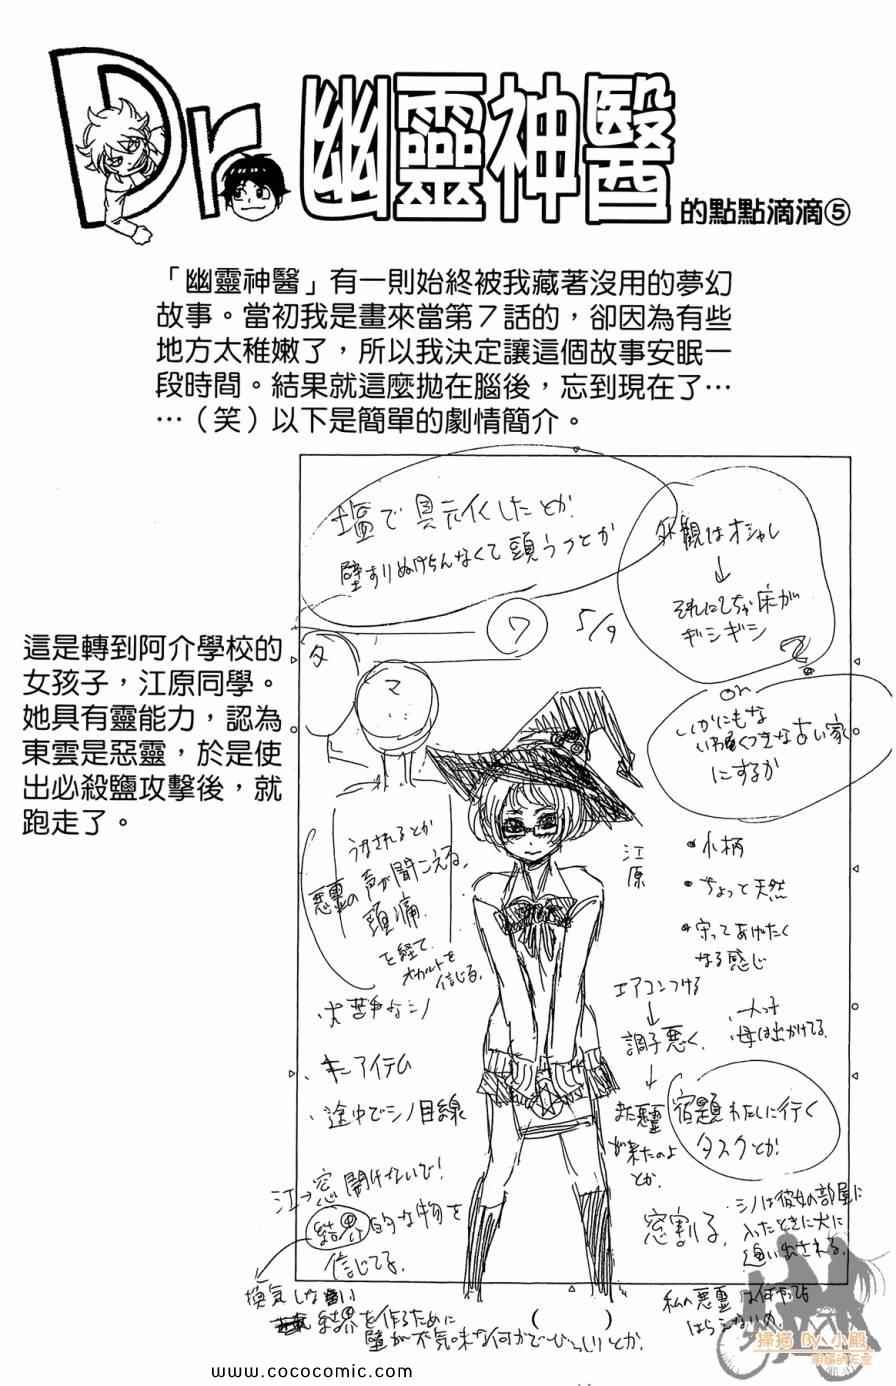 Dr.幽靈神醫的點點滴滴⑤
「幽靈神醫」有一則始終被我藏著沒用的夢幻
故事。當初我是畫來當第7話的，卻因為有些
地方太稚嫩了，所以我決定讓這個故事安眠一
段時間。結果就這麼拋在腦後，忘到現在了…
…（笑）以下是簡單的劇情簡介。
塩で具示化したとか
壁すりぬけらんなくて頭うつとか
外観はオシャレ
↓
それにしちゃ床が
ギシギシ
⑦ 5/9
タ
マ
or
いかにもな
いわくつきな古い家
にするか
這是轉到阿介學校的
女孩子，江原同學。
她具有靈能力，認為
東雲是惡靈，於是使
出必殺鹽攻擊後，就
跑走了。
うなされるとか
悪霊の声が聞こえる。
頭痛
を経て
オカルトを
信じる。
江原
・小柄
・ちょっと天然
・守ってあげたく
なる感じ
エアコンつける
↓
調子悪く
↓
また悪霊
が来たのよ
とか。
母は出かけてる。
・犬苦手なシノ
・キーアイテム
・途中でシノ目線
宿題わたしに行く
タスクとか
江→窓開けないで！
結界的な物を
信じてる。
窓割る。
・シノは彼女の部屋に
入ったときに犬に
追い出される。
換気しない
結界を作るために
壁が不気味な何かでびっしりとか。
( )
私の悪霊は何やっても
はらえないの
掃描 BY 小殿
www.cococomic.com